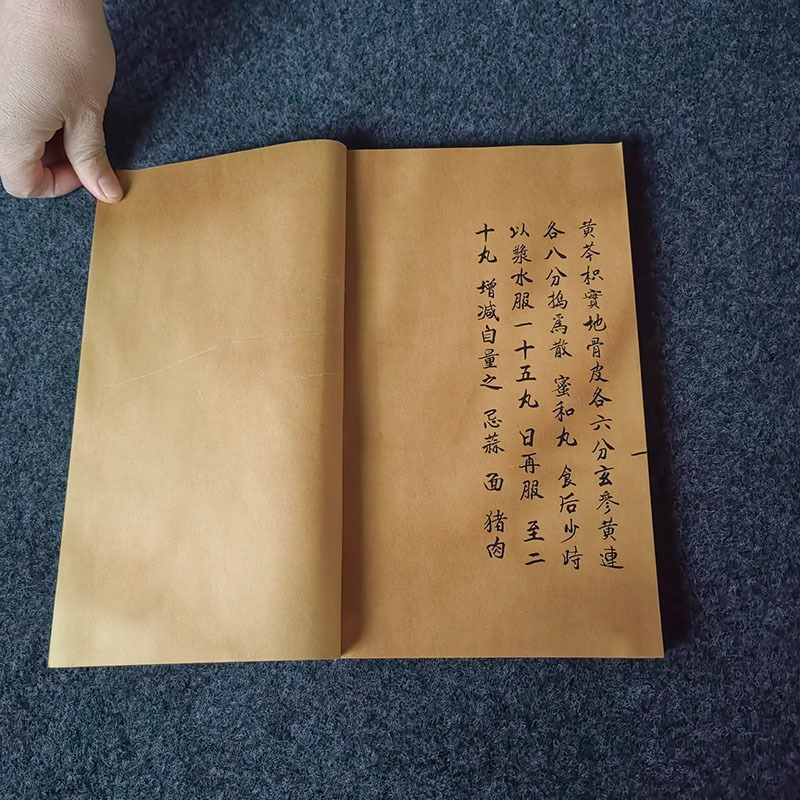 黄芩枳實地骨皮各六分玄參黄連
各八分搗爲散 蜜和丸 食后少時
以漿水服一十五丸 日再服 至二
十丸 增減自量之 忌蒜 面 猪肉